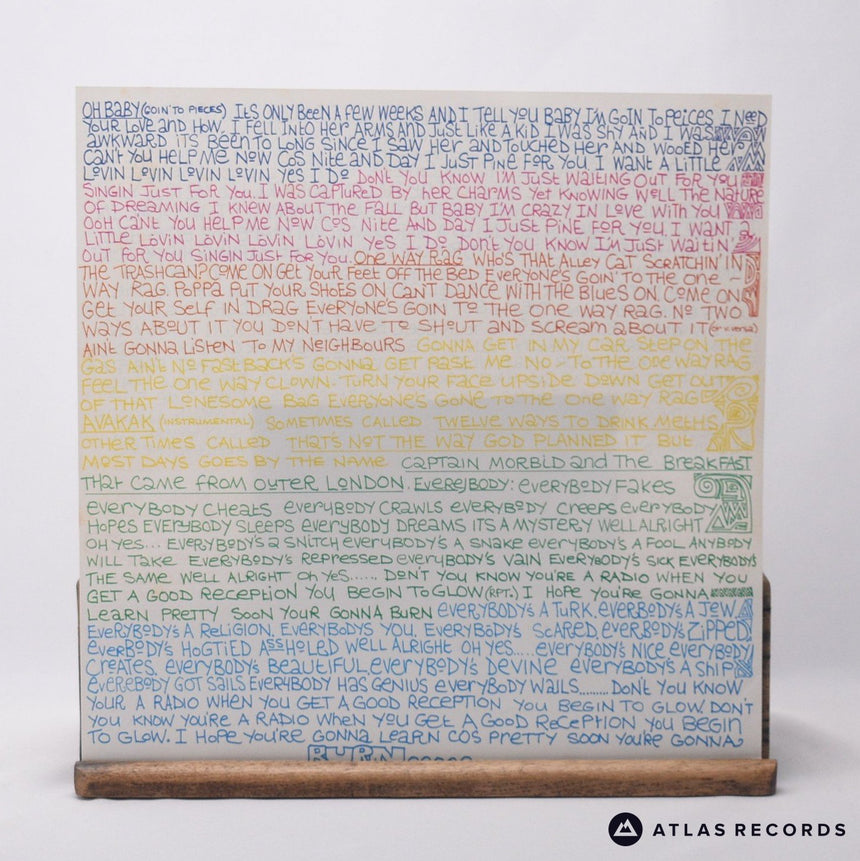 OH BABY (GOIN' TO PIECES) ITS ONLY BEEN A FEW WEEKS AND I TELL YOU BABY I'M GOIN TO PEICES I NEED
YOUR LOVE AND HOW. I FELL INTO HER ARMS AND JUST LIKE A KID I WAS SHY AND I WAS
AWKWARD ITS BEEN TO LONG SINCE I SAW HER AND TOUCHED HER AND WOOED HER
CAN'T YOU HELP ME NOW COS NITE AND DAY I JUST PINE FOR YOU. I WANT A LITTLE
LOVIN LOVIN LOVIN LOVIN YES I DO DON'T YOU KNOW I'M JUST WAITING OUT FOR YOU
SINGIN JUST FOR YOU. I WAS CAPTURED BY HER CHARMS YET KNOWING WELL THE NATURE
OF DREAMING I KNEW ABOUT THE FALL BUT BABY I'M CRAZY IN LOVE WITH YOU
OOH CAN'T YOU HELP ME NOW COS NITE AND DAY I JUST PINE FOR YOU. I WANT A
LITTLE LOVIN LOVIN LOVIN LOVIN YES I DO DON'T YOU KNOW I'M JUST WAITIN
OUT FOR YOU SINGIN JUST FOR YOU. ONE WAY RAG WHO'S THAT ALLEY CAT SCRATCHIN' IN
THE TRASHCAN? COME ON GET YOUR FEET OFF THE BED EVERYONE'S GOIN' TO THE ONE ~
WAY RAG. POPPA PUT YOUR SHOES ON CAN'T DANCE WITH THE BLUES ON. COME ON
GET YOUR SELF IN DRAG EVERYONE'S GOIN TO THE ONE WAY RAG. NO TWO
WAYS ABOUT IT YOU DON'T HAVE TO SHOUT AND SCREAM ABOUT IT (OR VERSA)
AIN'T GONNA LISTEN TO MY NEIGHBOURS GONNA GET IN MY CAR STEP ON THE
GAS AIN'T NO FASTBACK'S GONNA GET PAST ME. NO - TO THE ONE WAY RAG
FEEL THE ONE WAY CLOWN. TURN YOUR FACE UPSIDE DOWN GET OUT
OF THAT LONESOME BAG EVERYONE'S GONE TO THE ONE WAY RAG
AVAKAK (INSTRUMENTAL) SOMETIMES CALLED TWELVE WAYS TO DRINK METHS
OTHER TIMES CALLED THAT'S NOT THE WAY GOD PLANNED IT BUT
MOST DAYS GOES BY THE NAME CAPTAIN MORBID AND THE BREAKFAST
THAT CAME FROM OUTER LONDON. EVEREJBODY: EVERYBODY FAKES
EVERYBODY CHEATS EVERYBODY CRAWLS EVERYBODY CREEPS EVERYBODY
HOPES EVERYBODY SLEEPS EVERYBODY DREAMS ITS A MYSTERY WELL ALRIGHT
OH YES... EVERYBODY'S A SNITCH EVERYBODY'S A SNAKE EVERYBODY'S A FOOL ANYBODY
WILL TAKE EVERYBODY'S REPRESSED EVERYBODY'S VAIN EVERYBODY'S SICK EVERYBODY'S
THE SAME WELL ALRIGHT OH YES...... DON'T YOU KNOW YOU'RE A RADIO WHEN YOU
GET A GOOD RECEPTION YOU BEGIN TO GLOW (RPT.) I HOPE YOU'RE GONNA
LEARN PRETTY SOON YOUR GONNA BURN EVERYBODY'S A TURK, EVERBODY'S A JEW
EVERYBODY'S A RELIGION, EVERYBODYS YOU, EVERYBODY'S SCARED, EVERBODY'S ZIPPED
EVERBODY'S HOGTIED ASSHOLED WELL ALRIGHT OH YES.... EVERYBODY'S NICE EVERYBODY
CREATES EVERYBODY'S BEAUTIFUL EVERYBODY'S DEVINE EVERYBODY'S A SHIP
EVEREBODY GOT SAILS EVERYBODY HAS GENIUS EVERYBODY WAILS........ DON'T YOU KNOW
YOUR A RADIO WHEN YOU GET A GOOD RECEPTION YOU BEGIN TO GLOW. DON'T
YOU KNOW YOU'RE A RADIO WHEN YOU GET A GOOD RECEPTION YOU BEGIN
TO GLOW. I HOPE YOU'RE GONNA LEARN COS PRETTY SOON YOU'RE GONNA
BURN
ATLAS RECORDS